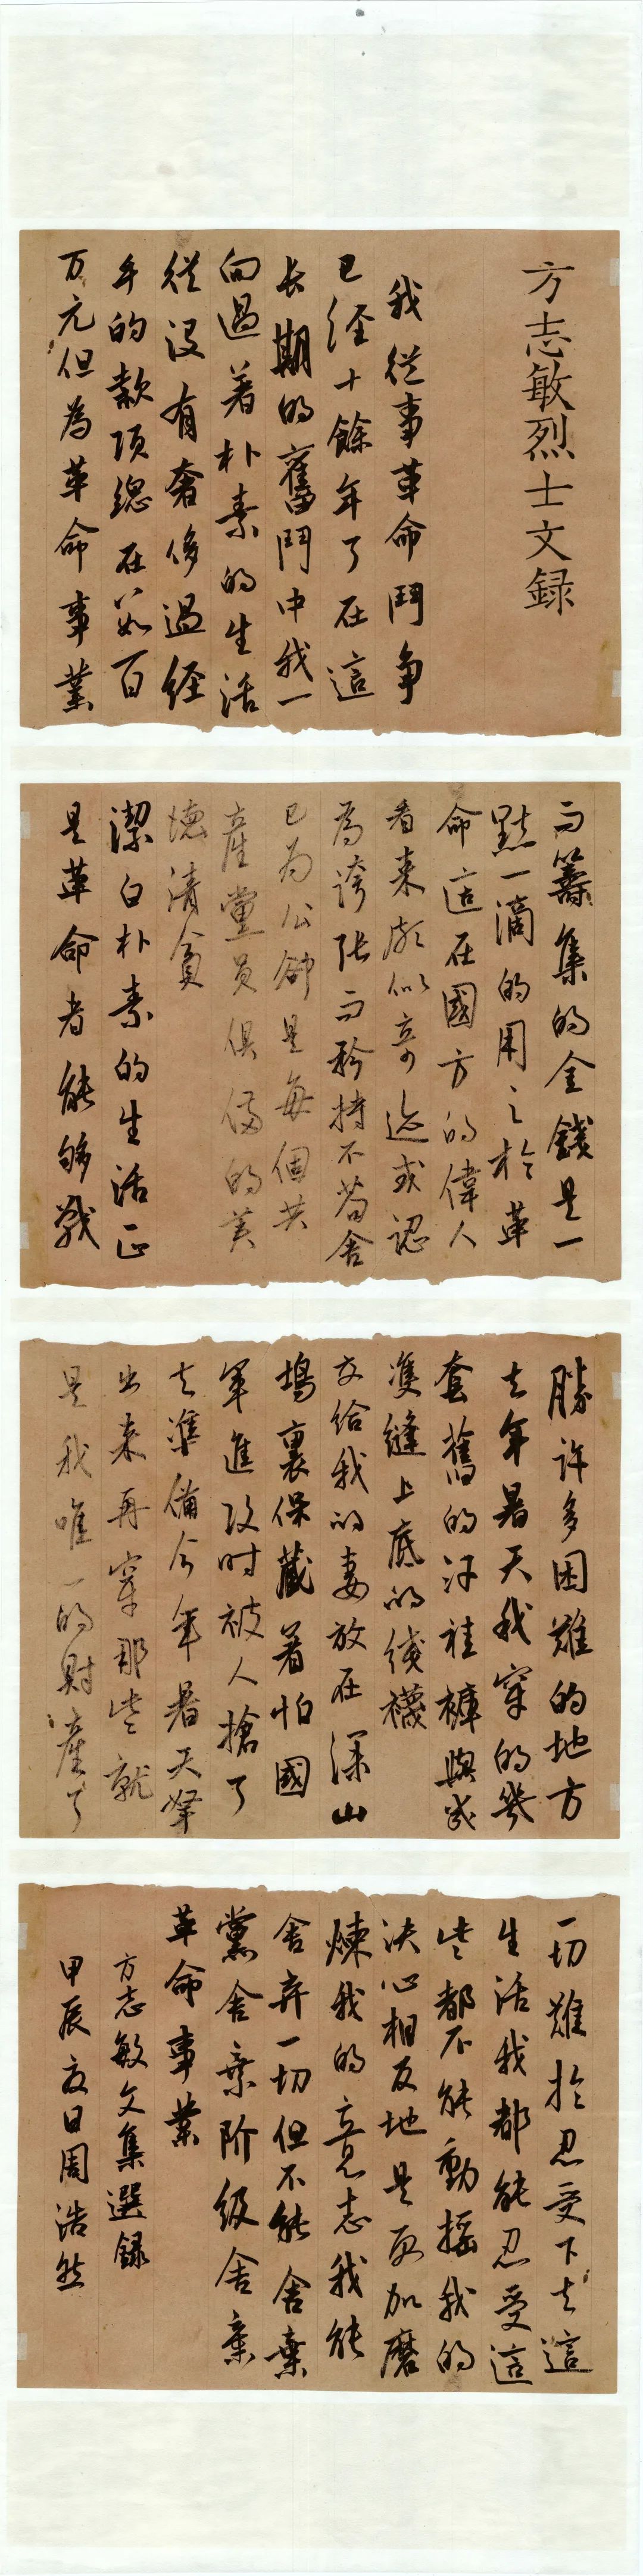 方志敏烈士文録
我從事革命鬥爭
已經十餘年了在這
長期的奮鬥中我一
向過著朴素的生活
從沒有奢侈過經
手的款項總在數百
万元但為革命事業
而籌集的金錢是一
點一滴的用之於革
命這在國方的偉人
看來頗似奇迹或認
為誇張而矜持不苟舍
己為公卻是每個共
產黨員俱備的美
德清貧
潔白朴素的生活正
是革命者能够戰
勝许多困難的地方
去年暑天我穿的幾
套舊的汗褂褲與幾
雙縫上底的綫襪
交给我的妻放在深山
塢裏保藏著怕國
軍進攻时被人搶了
去準備今年暑天拿
出来再穿那些就
是我唯一的財產了
一切難於忍受下去這
生活我都能忍受這
些都不能動搖我的
决心相反地是更加磨
煉我的意志我能
舍弃一切但不能舍棄
黨舍棄阶级舍棄
革命事業
方志敏文集選録
甲辰夏日周浩然